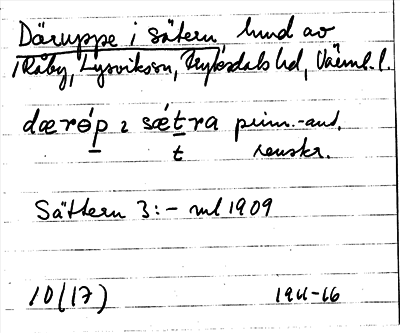 Däruppe i Sätern hund av
Råby, Lysviks sn, Fryksdals hd, Värml. l.
dærớp ɪ sǽtra prim.-and.
t renskr.
Sättern 3:- ml 1909
10(17) 1911-16